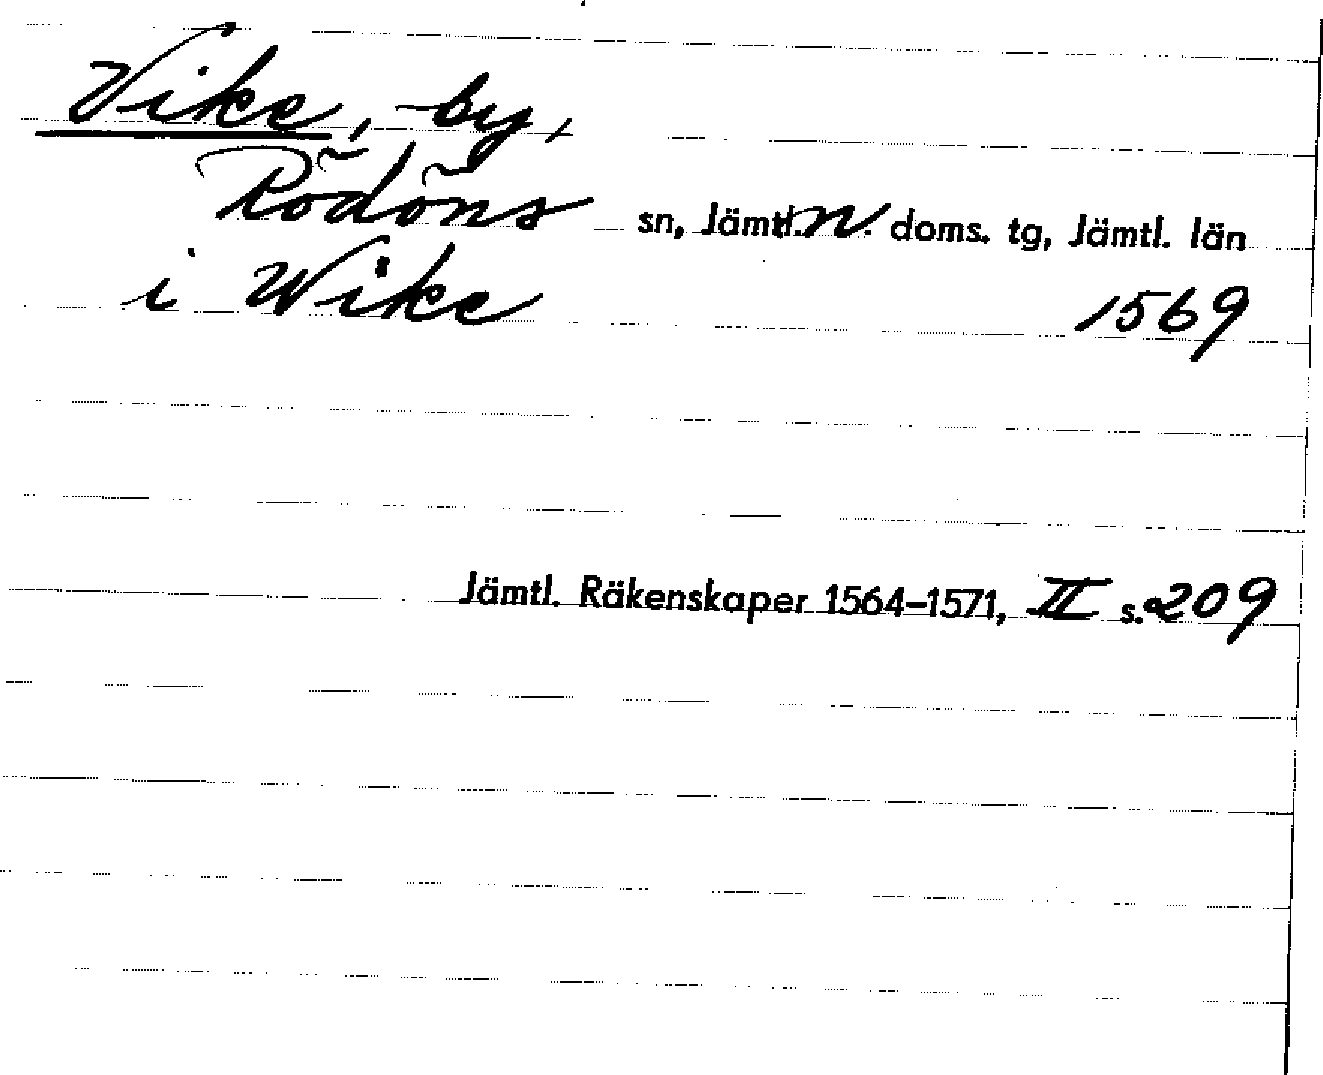 Vike, by,
Rödöns sn, Jämtl. n. doms. tg, Jämtl. län
i Wike 1569
Jämtl. Räkenskaper 1564–1571, II s. 209